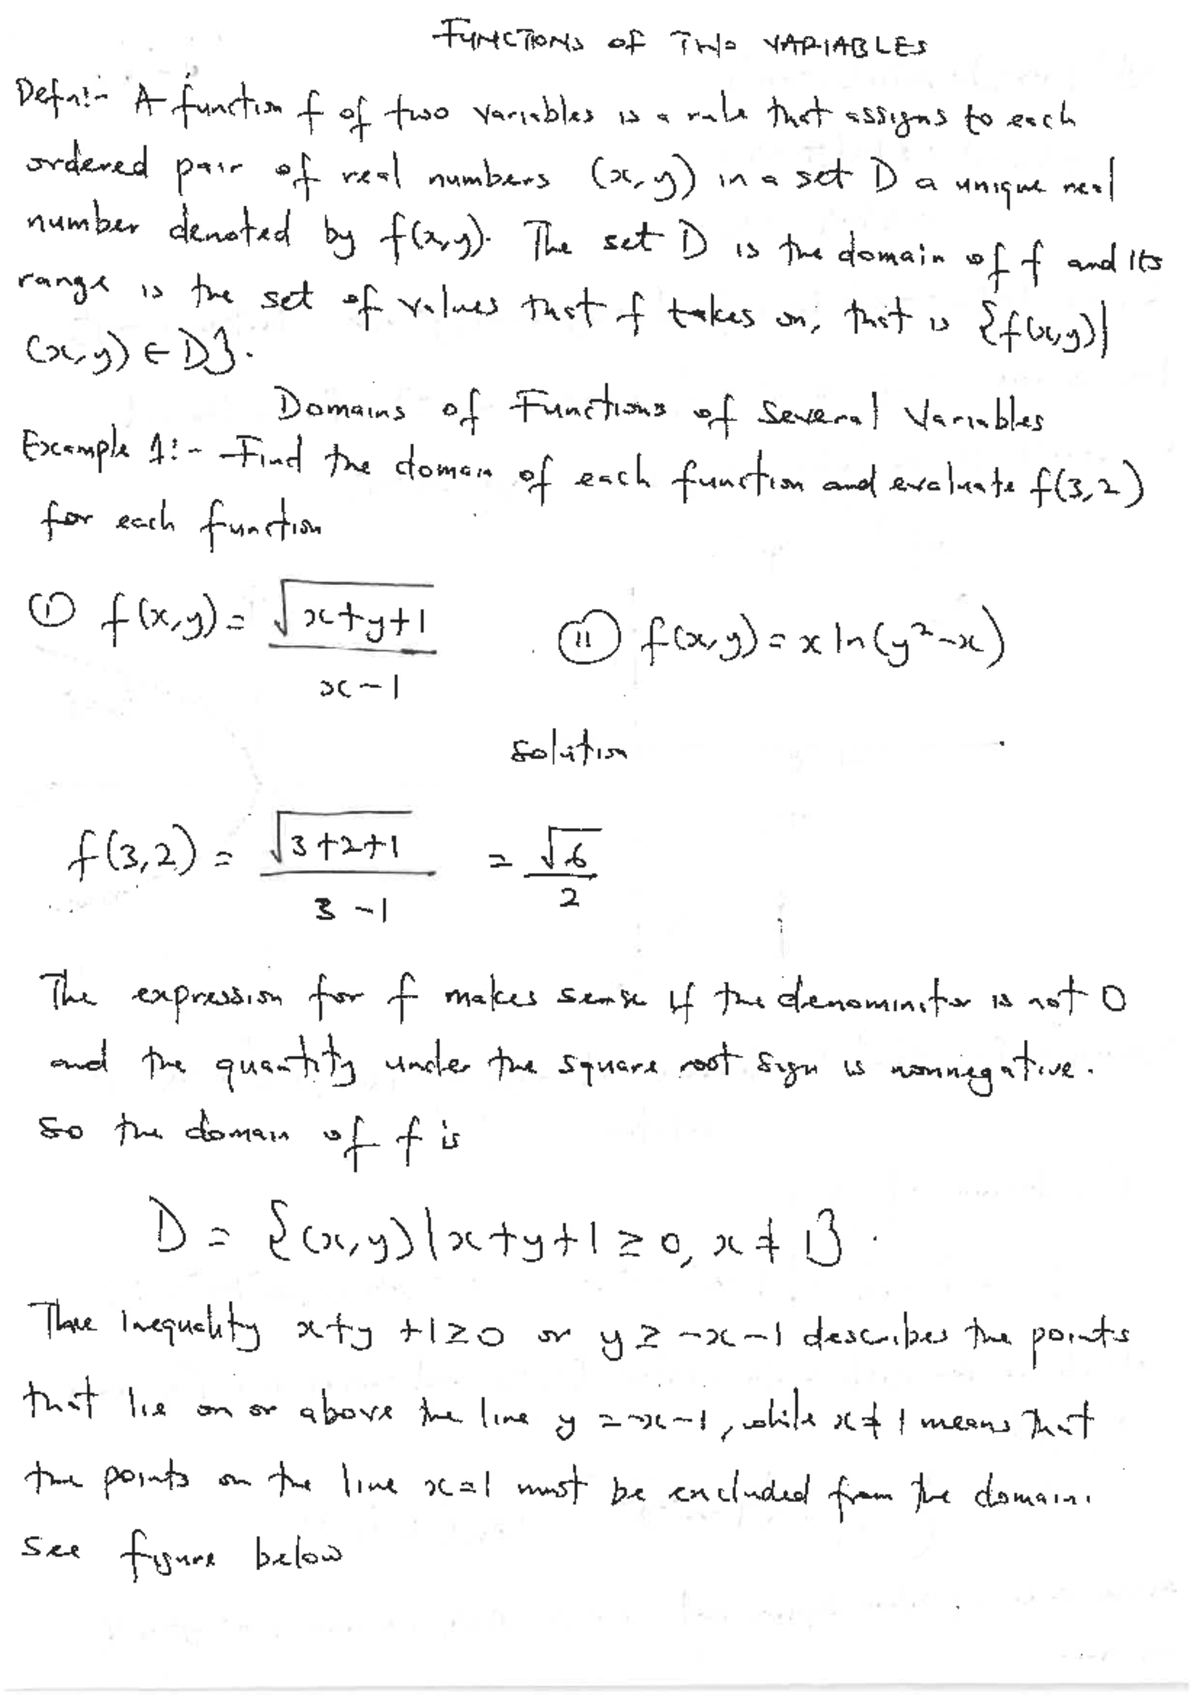 FUNCTIONS OF TWO VARIABLES
Defn:- A function f of two variables is a rule that assigns to each
ordered pair of real numbers (x, y) in a set D a unique real
number denoted by f(x,y). The set D is the domain of f and its
range is the set of values that f takes on, that is {f(x,y)|
(x, y) ∈ D}.
Domains of Functions of Several Variables
Example 1:- Find the domain of each function and evaluate f(3,2)
for each function
(i) f(x,y) = √(x+y+1) / (x-1) (ii) f(x,y) = x ln(y²-x)
solution
f(3,2) = √(3+2+1) / (3-1) = √6 / 2
The expression for f makes sense if the denominator is not 0
and the quantity under the square root sign is nonnegative.
So the domain of f is
D = {(x,y)|x+y+1 ≥ 0, x ≠ 1}.
The inequality x+y+1≥0 or y ≥ -x-1 describes the points
that lie on or above the line y = -x-1, while x≠1 means that
the points on the line x=1 must be excluded from the domain.
See figure below